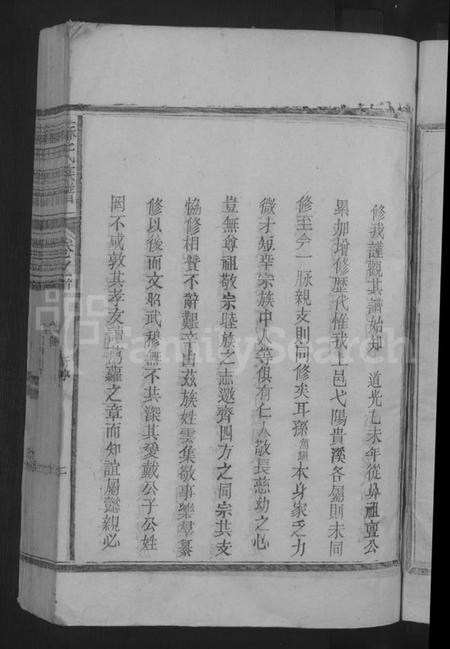 修我謹觀其譜始知　道光乙未年從鼻祖亶公
累加增修歷代惟我一邑弋陽貴溪各屬則未同
修至今一脉親支則同修矣耳孫本身家乏力
微才短幸宗族中人等俱有仁人敬長慈幼之心
豈無尊祖敬宗睦族之志邀齊四方之同宗共支
恊修相贊不辭艱辛由茲族姓雲集敬事樂羣纂
修以後而文昭武穆無不共深其愛戴公子公姓
罔不咸敦其孝友誦葛藟之章而知誼屬懿親必
氏族譜
卷之首
FamilySearch